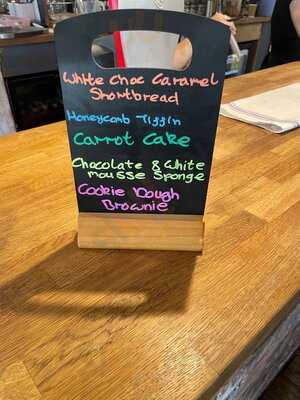 White Choc Caramel
Shortbread
Honeycomb Tiffin
Carrot Cake
Chocolate & White
mousse Sponge
Cookie Dough
Brownie